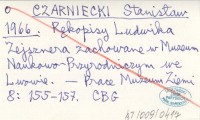 CZARNIECKI Stanisław
1966. Rękopisy Ludwika
Zejsznera zachowane w Muzeum
Naukowo-Przyrodniczym we
Lwowie. — Prace Muzeum Ziemi
8: 155-157. CBG
AT1009/0417